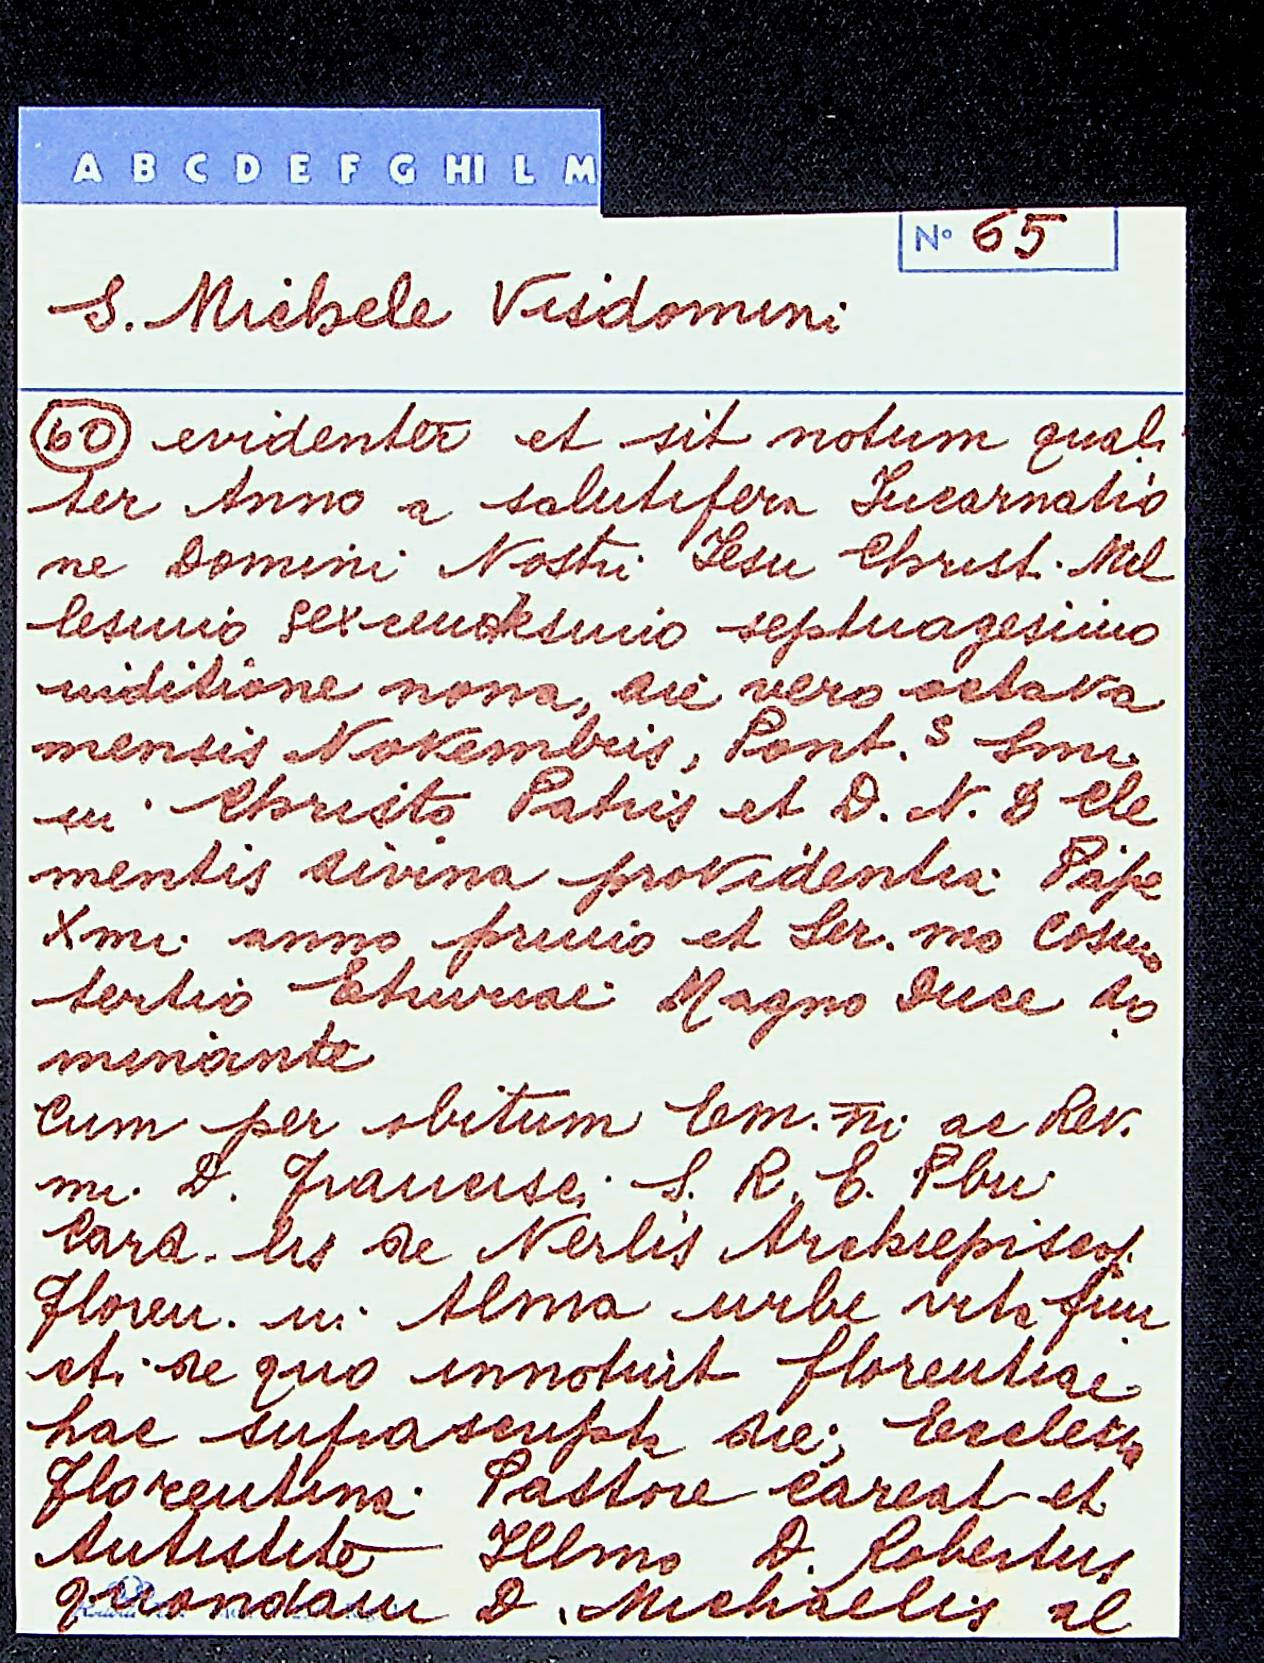 A B C D E F G HI L M
N° 65
S. Michele Visdomini
60 evidenter et sit notum quali
ter Anno a salutifera Incarnatio
ne Domini Nostri Iesu Christi Mil
lesimo sexcentesimo septuagesimo
inditione nona, die vero octava
mensis Novembris, Pont. s Smi
in Christo Patris et D. N. D Cle
mentis divina providentia Pape
Xmi anno primo et Ser. mo Cosmo
tertio Etruriae Magno Duce do
minante
Cum per obitum Em. mi ac Rev.
mi D. Francisci S. R. E. Pbri
Card. lis de Nerlis Archiepiscop.
Floren. in Alma urbe vita fun
cti de quo innotuit florentiae
hac suprascripta die, Ecclesia
Florentina Pastore careat et
Antistite Illmo D. Robertus
quondam D. Michaelis al